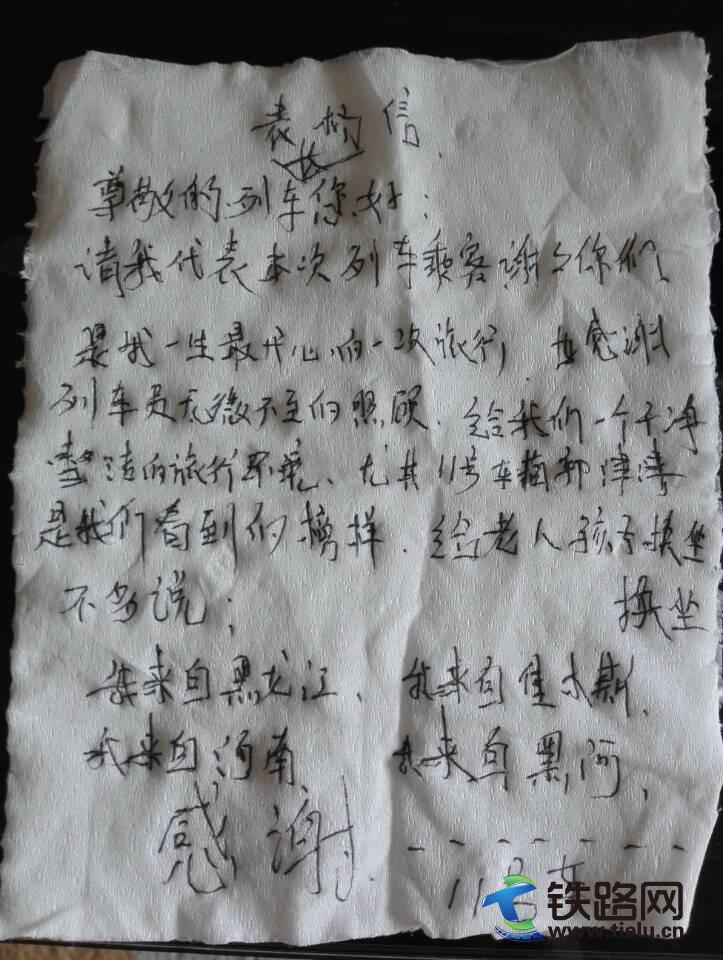 表扬信
尊敬的列车您好:
请我代表本次列车乘客谢谢你们
是我一生最开心的一次旅行,
感谢
列车员无微不至的照顾.给我们一个干净
整洁的旅行环境、尤其11号车厢郭津津
是我们看到的榜样.给老人孩子换坐
不多说; 换坐
我来自黑龙江、我来自佳木斯、
我来自河南、我来自黑河、
感谢.
铁路网
www.tielu.cn